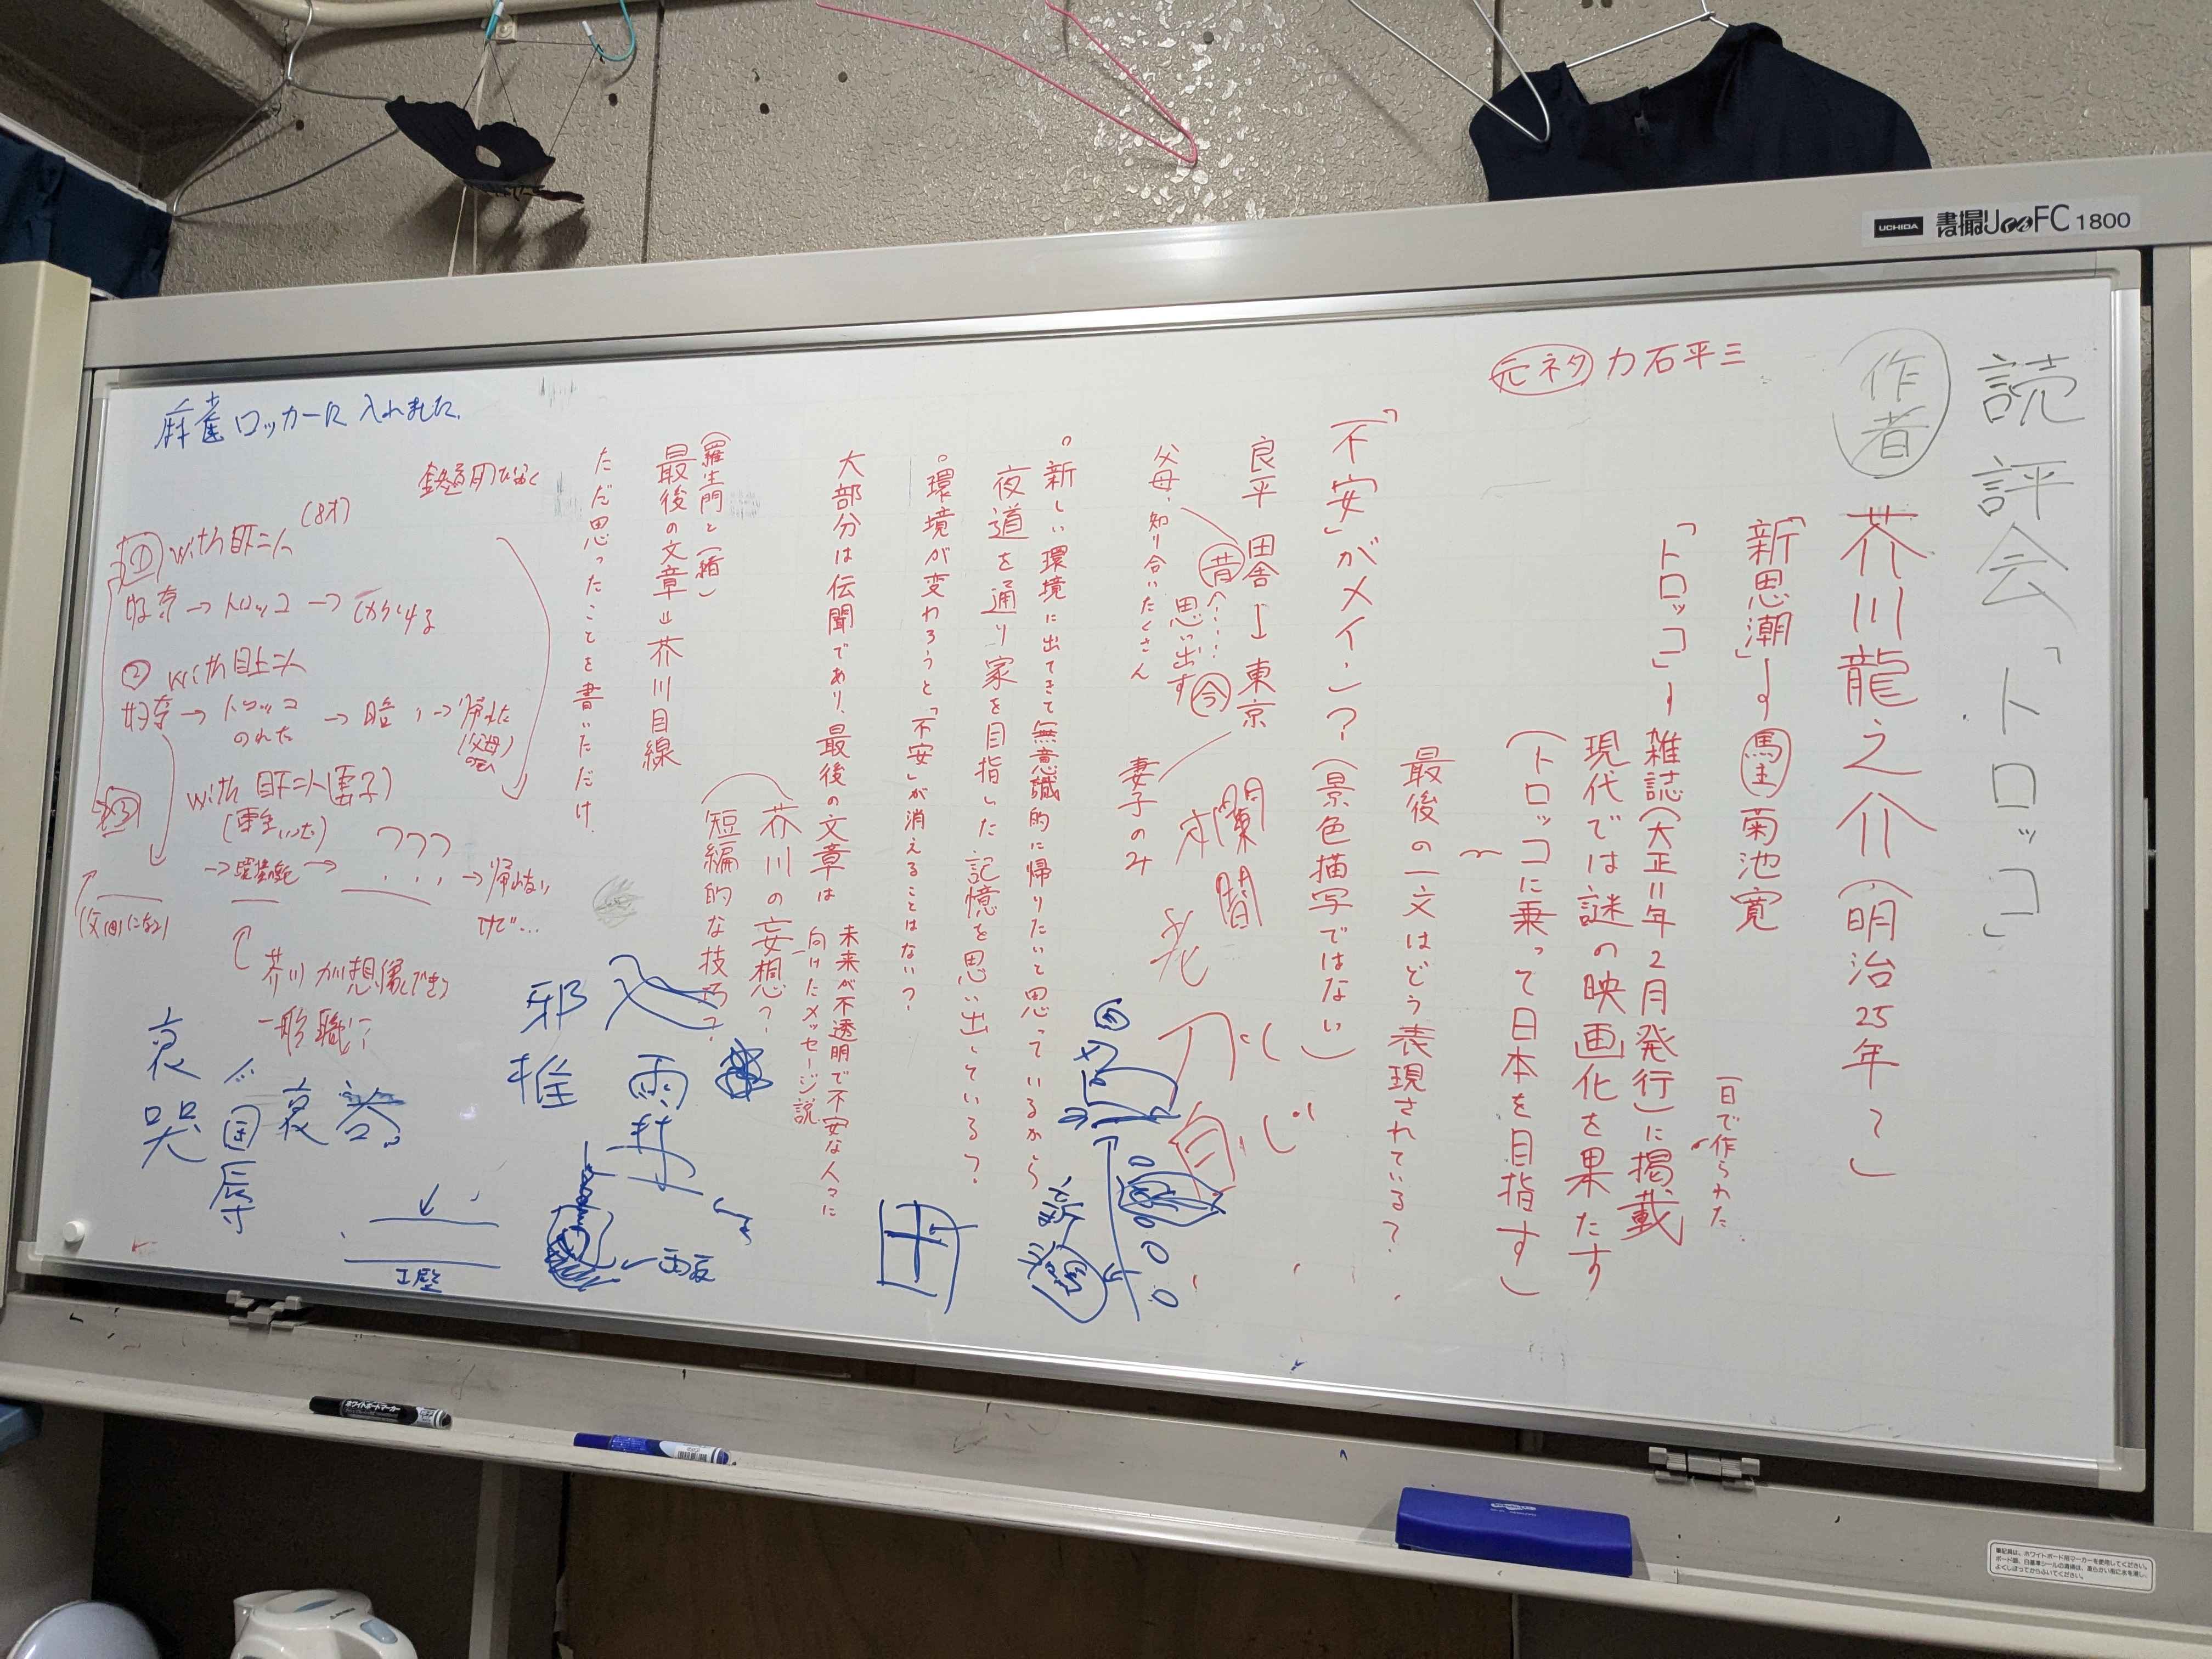 UCHIDA 書撮りくん FC 1800
読評会「トロッコ」
作者 芥川龍之介(明治25年〜)
元ネタ 力石平三
「新思潮」→ 菊池寛
「トロッコ」→雑誌(大正11年2月発行)に掲載
一日で作られた
現代では謎の映画化を果たす
(トロッコに乗って日本を目指す)
最後の一文はどう表現されている?
「不安」がメイン?(景色描写ではない)
良平 田舎→東京
昔へ……今
思い出す
父母、知り合いたくさん
妻子のみ
欄間
。新しい環境に出てきて無意識的に帰りたいと思っているから
夜道を通り家を目指した記憶を思い出している?
。環境が変わろうと「不安」が消えることはない?
大部分は伝聞であり、最後の文章は
未来が不透明で不安な人々に
向けたメッセージ説
芥川の妄想?
短編的な技巧?
(羅生門と一緒)
最後の文章=芥川目線
ただ思ったことを書いただけ.
麻雀ロッカーに入れました.
① with 目下二人
(8才)
好奇→トロッコ→しかられる
② with 目上二人
好奇→トロッコのれた→暗い→帰れた
(父母)
③ with 目下二人(妻子)
???
→帰れない
けど…
芥川が想像できる
一般職?
邪
推
雨
哀
哭
国
辱
哀
田
新